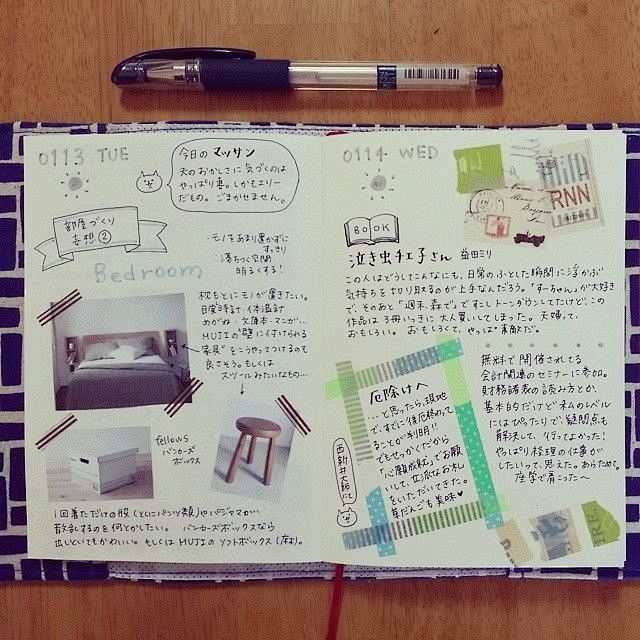 0113 TUE
今日のマッサン
夫のおかしさに気づくのは
やっぱり妻。しかもエリー
だもの。ごまかせません。
部屋づくり
妄想②
・モノをあまり置かずに
すっきり
落ちつく空間
明るくする!
Bedroom
枕もとにモノが置きたい。
目覚時計・体温計
めがね・文庫本・マンガ…
MUJIの"壁に付けられる
家具"をこうやってつけるのも
良さそう。もしくは
スツールみたいなもの…
fellows
バンカーズ
ボックス
1回着ただけの服(とくにパンツ類)やパジャマが
散乱するのを何とかしたい。バンカーズボックスなら
出しといてもかわいい。もしくはMUJIのソフトボックス
0114 WED
BOOK
泣き虫チエ子さん 益田ミリ
この人はどうしてこんなにも、日常のふとした瞬間に浮かぶ
気持ちを切り取るのが上手なんだろう。「すーちゃん」が大好き
で、そのあと「週末、森で」で少しトーンダウンしてたけど、この
作品は3冊いっきに大人買いしてしまった。夫婦って、
おもしろい。おもしろくて、やっぱ素敵だ。
厄除けへ
…と思ったら、現地
で、すでに後厄終わって
ることが判明!!
でもせっかくだから
「心願成就」をお願
いして、立派なお札
をいただいてきた。
草だんごも美味♥
西新井大師にて
無料で開催されてる
会計関連のセミナーに参加。
財務諸表の読み方とか、
基本的だけど私のレベル
にはぴったりで、疑問点も
解決して、行ってよかった!
やっぱり経理の仕事が
したいって、思えた。あらためて。
座学で肩こった~
RNN